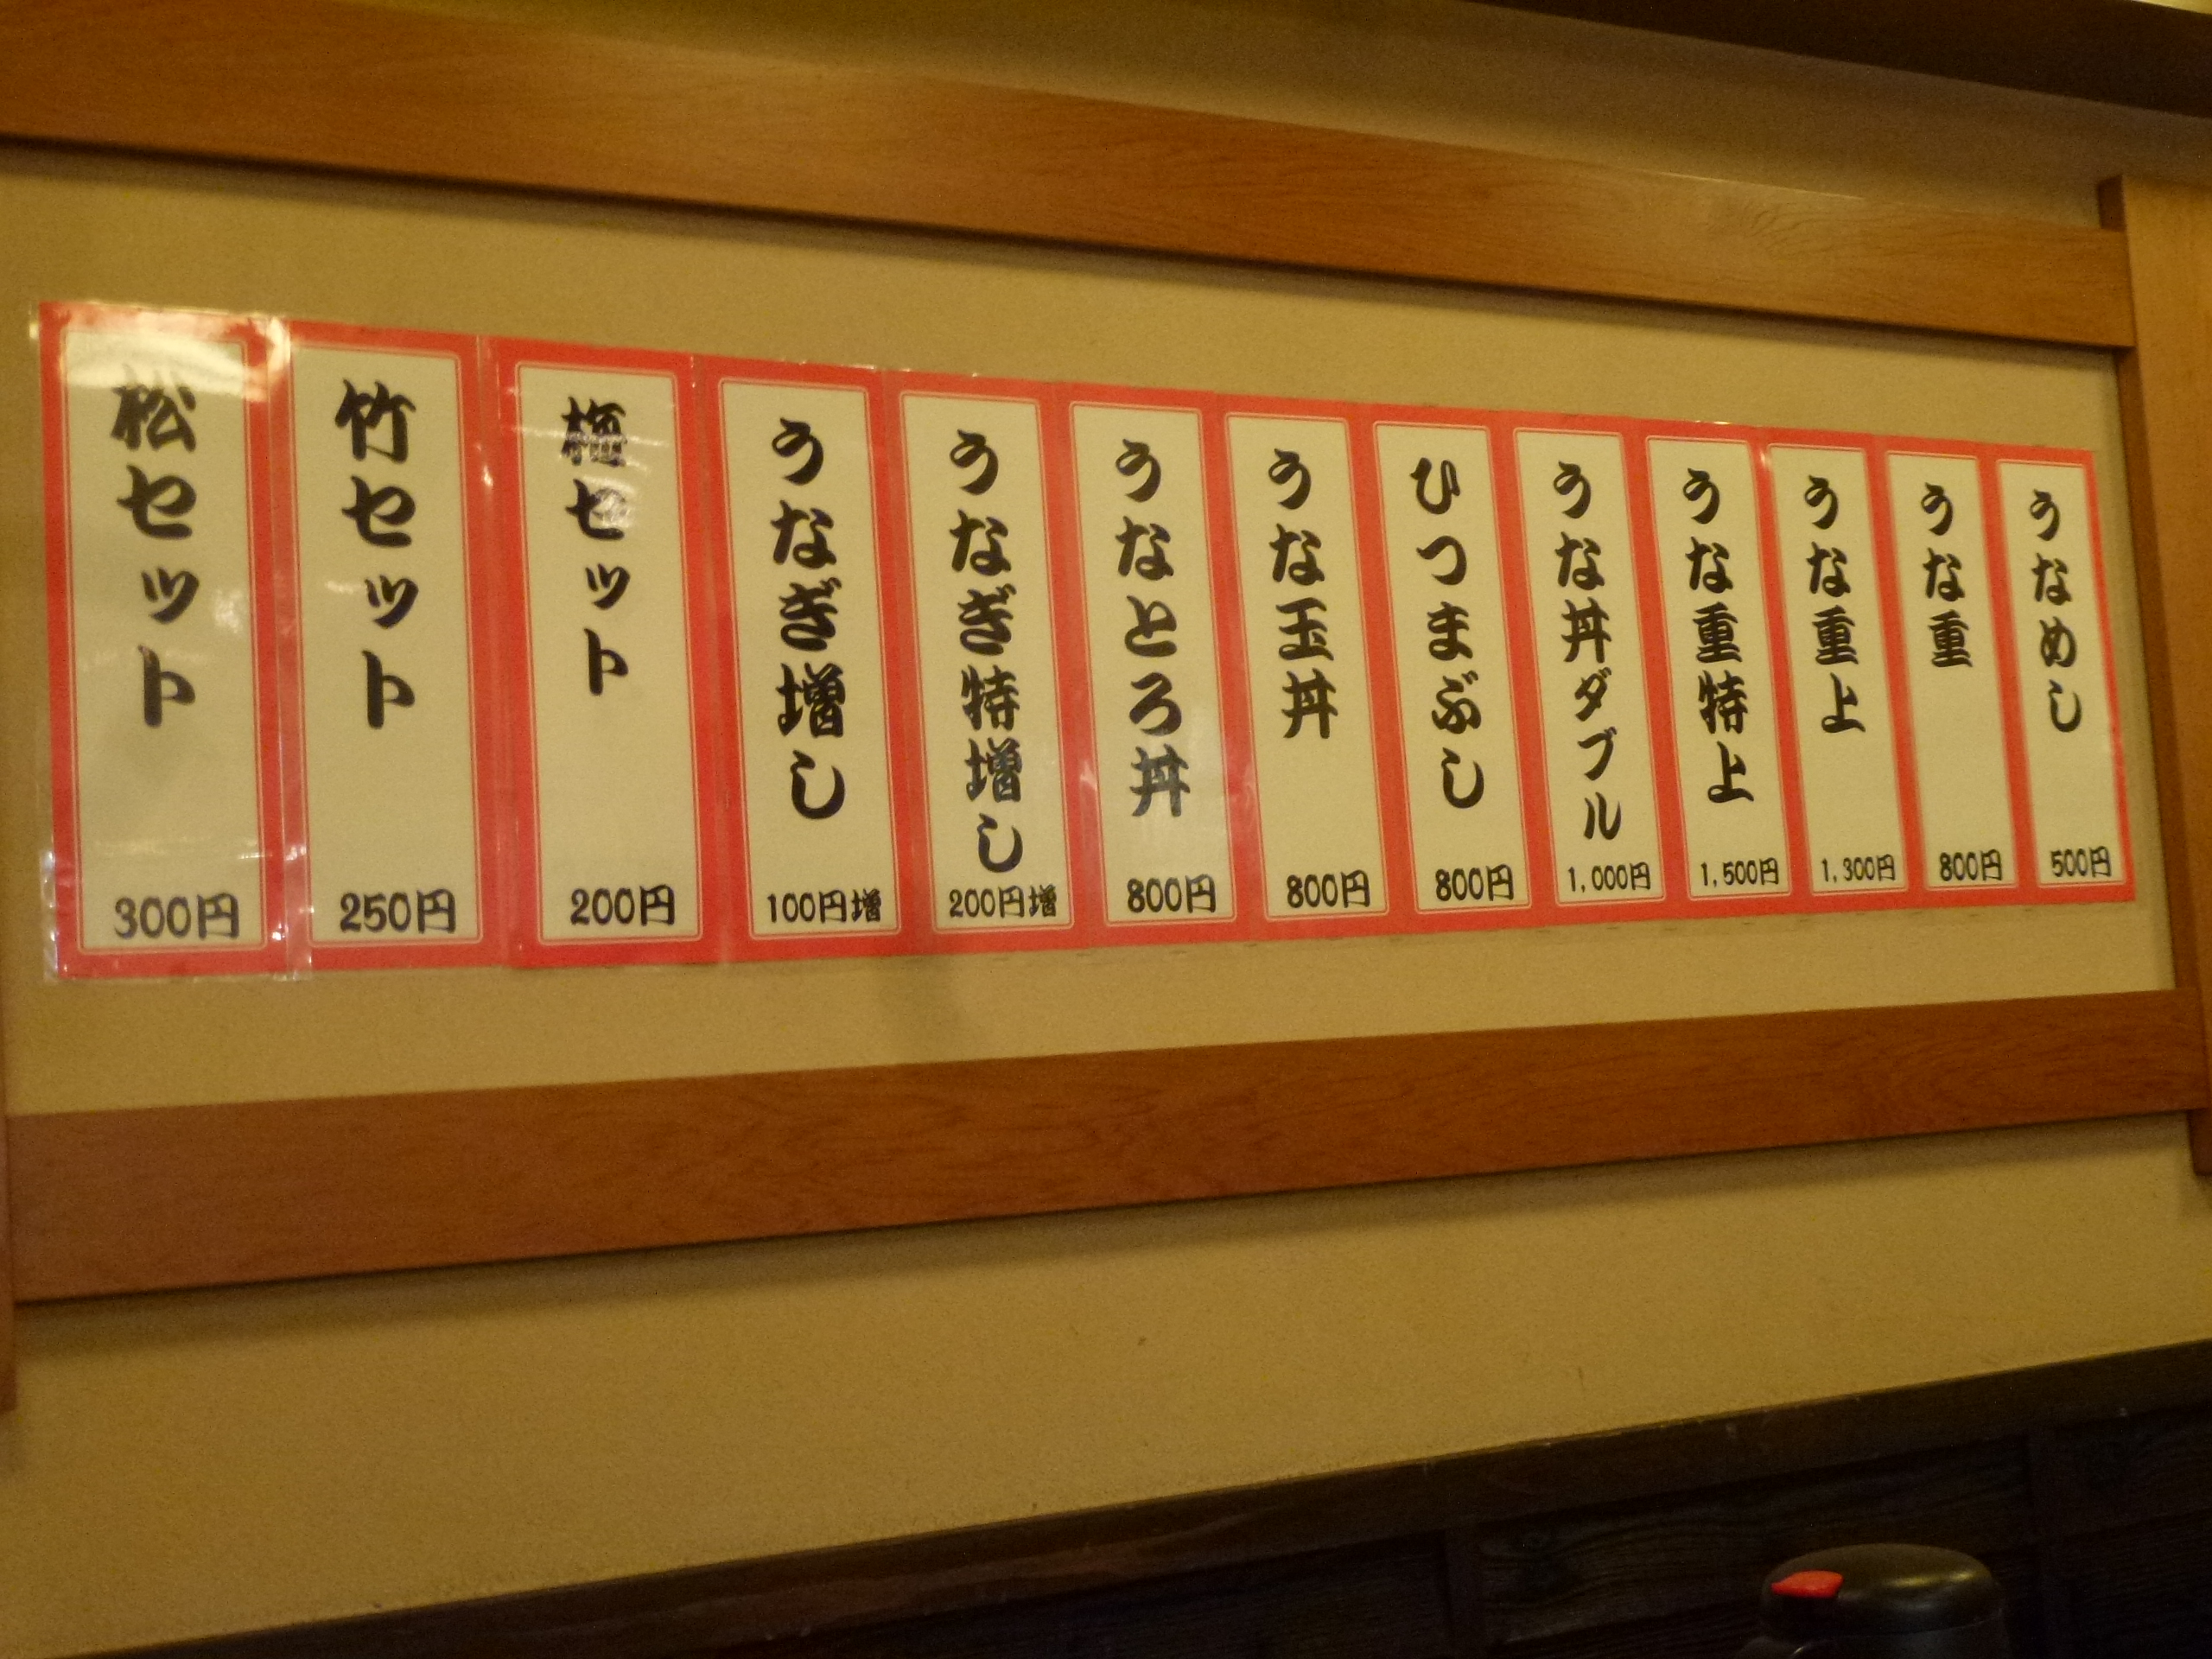 うなめし
500円
うな重
800円
うな重上
1,300円
うな重特上
1,500円
うな丼ダブル
1,000円
ひつまぶし
800円
うな玉丼
800円
うなとろ丼
800円
うなぎ特増し
200円増
うなぎ増し
100円増
梅セット
200円
竹セット
250円
松セット
300円